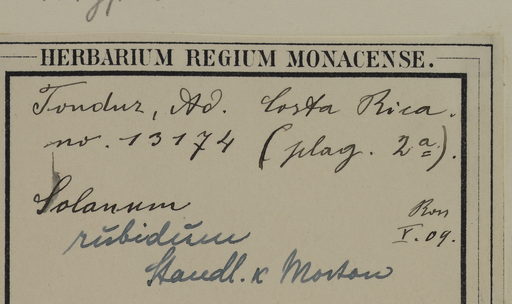 HERBARIUM REGIUM MONACENSE.
Tonduz, Ad. Costa Rica.
no. 13174 (plag. 2a).
Solanum
V. 09.
rubidum
Standl. & Morton